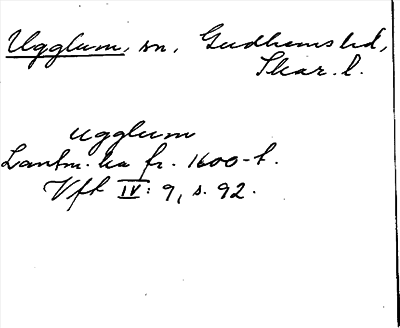 Ugglum, sn, Gudhems hd,
Skar. l.
Ugglum
Lantm. ka fr. 1600-t.
Vft IV: 9, s. 92.